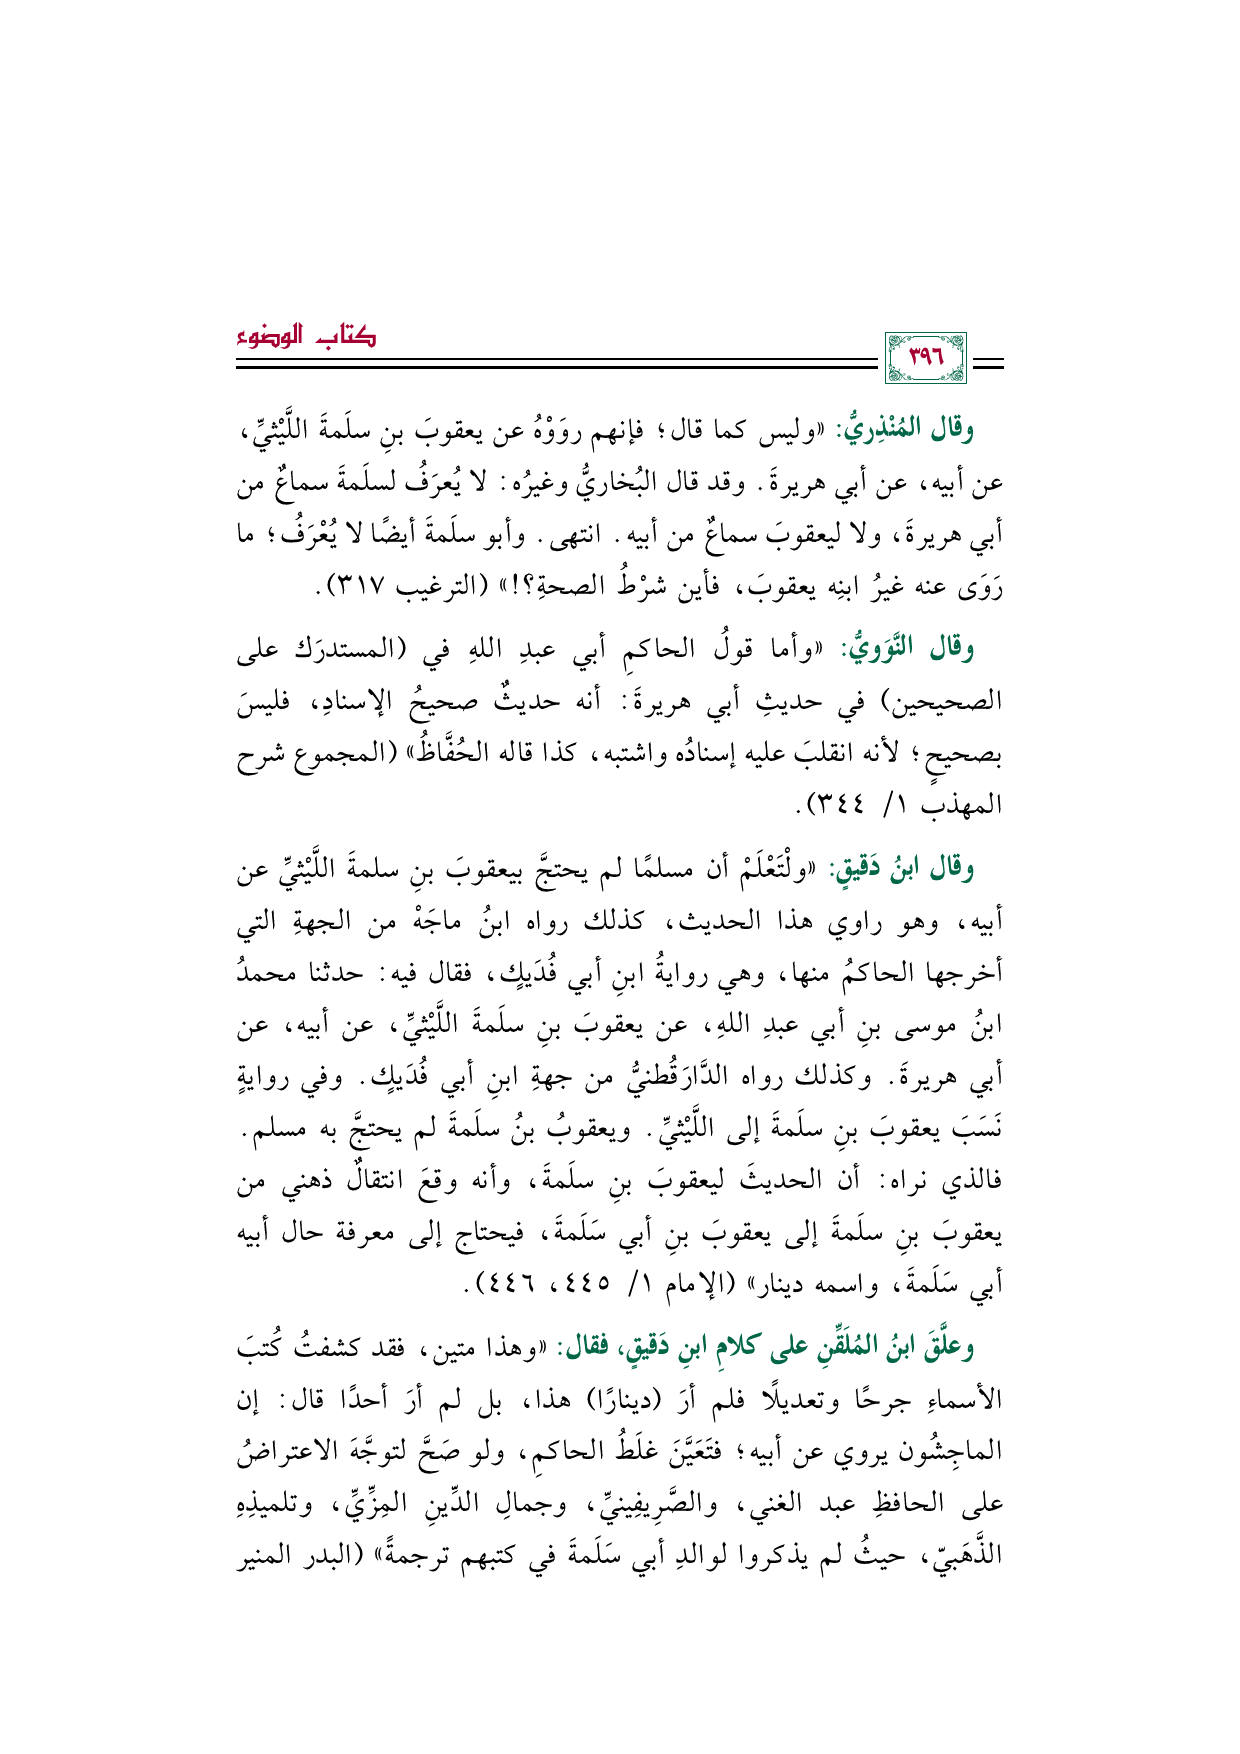 كتاب الوضوء
٣٩٦
وقال المُنْذِريُّ: «وليس كما قال؛ فإنهم روَوْهُ عن يعقوبَ بنِ سلَمةَ اللَّيْثيِّ،
عن أبيه، عن أبي هريرةَ. وقد قال البُخاريُّ وغيرُه: لا يُعرَفُ لسلَمةَ سماعٌ من
أبي هريرةَ، ولا ليعقوبَ سماعٌ من أبيه. انتهى. وأبو سلَمةَ أيضًا لا يُعْرَفُ؛ ما
رَوَى عنه غيرُ ابنِه يعقوبَ، فأين شرْطُ الصحةِ؟!» (الترغيب ٣١٧).
وقال النَّوَويُّ: «وأما قولُ الحاكمِ أبي عبدِ اللهِ في (المستدرَك على
الصحيحين) في حديثِ أبي هريرةَ: أنه حديثٌ صحيحُ الإسنادِ، فليسَ
بصحيحٍ؛ لأنه انقلبَ عليه إسنادُه واشتبه، كذا قاله الحُفَّاظُ» (المجموع شرح
المهذب ١/ ٣٤٤).
وقال ابنُ دَقيقٍ: «ولْتَعْلَمْ أن مسلمًا لم يحتجَّ بيعقوبَ بنِ سلمةَ اللَّيْثيِّ عن
أبيه، وهو راوي هذا الحديث، كذلك رواه ابنُ ماجَهْ من الجهةِ التي
أخرجها الحاكمُ منها، وهي روايةُ ابنِ أبي فُدَيكٍ، فقال فيه: حدثنا محمدُ
ابنُ موسى بنِ أبي عبدِ اللهِ، عن يعقوبَ بنِ سلَمةَ اللَّيْثيِّ، عن أبيه، عن
أبي هريرةَ. وكذلك رواه الدَّارَقُطنيُّ من جهةِ ابنِ أبي فُدَيكٍ. وفي روايةٍ
نَسَبَ يعقوبَ بنِ سلَمةَ إلى اللَّيْثيِّ. ويعقوبُ بنُ سلَمةَ لم يحتجَّ به مسلم.
فالذي نراه: أن الحديثَ ليعقوبَ بنِ سلَمةَ، وأنه وقعَ انتقالٌ ذهني من
يعقوبَ بنِ سلَمةَ إلى يعقوبَ بنِ أبي سَلَمةَ، فيحتاج إلى معرفة حال أبيه
أبي سَلَمةَ، واسمه دينار» (الإمام ١/ ٤٤٥، ٤٤٦).
وعلَّقَ ابنُ المُلَقِّنِ على كلامِ ابنِ دَقيقٍ، فقال: «وهذا متين، فقد كشفتُ كُتبَ
الأسماءِ جرحًا وتعديلًا فلم أرَ (دينارًا) هذا، بل لم أرَ أحدًا قال: إن
الماجِشُون يروي عن أبيه؛ فتَعَيَّنَ غلَطُ الحاكمِ، ولو صَحَّ لتوجَّهَ الاعتراضُ
على الحافظِ عبد الغني، والصَّرِيفِينيِّ، وجمالِ الدِّينِ المِزِّيِّ، وتلميذِهِ
الذَّهَبيّ، حيثُ لم يذكروا لوالدِ أبي سَلَمةَ في كتبهم ترجمةً» (البدر المنير